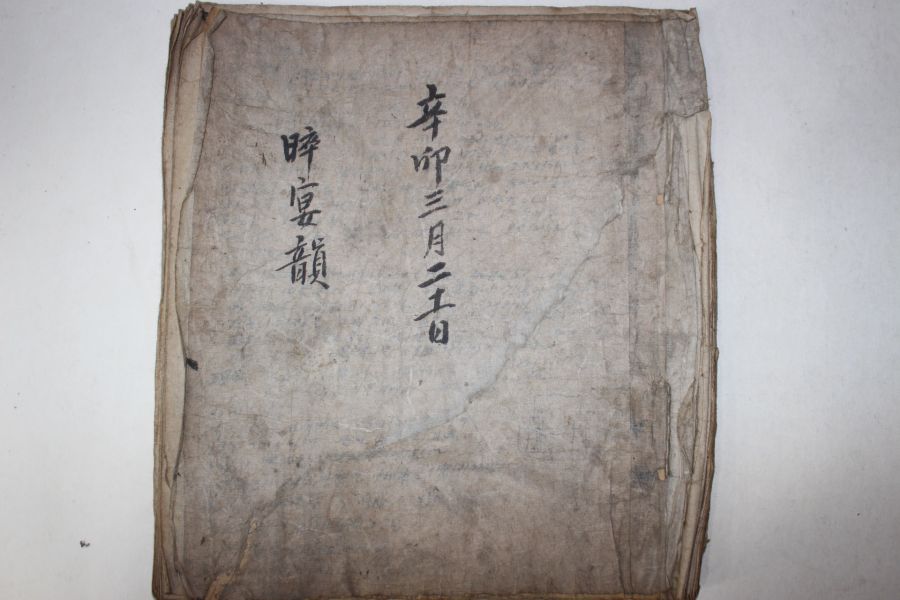 辛卯三月二十一日
晬宴韻